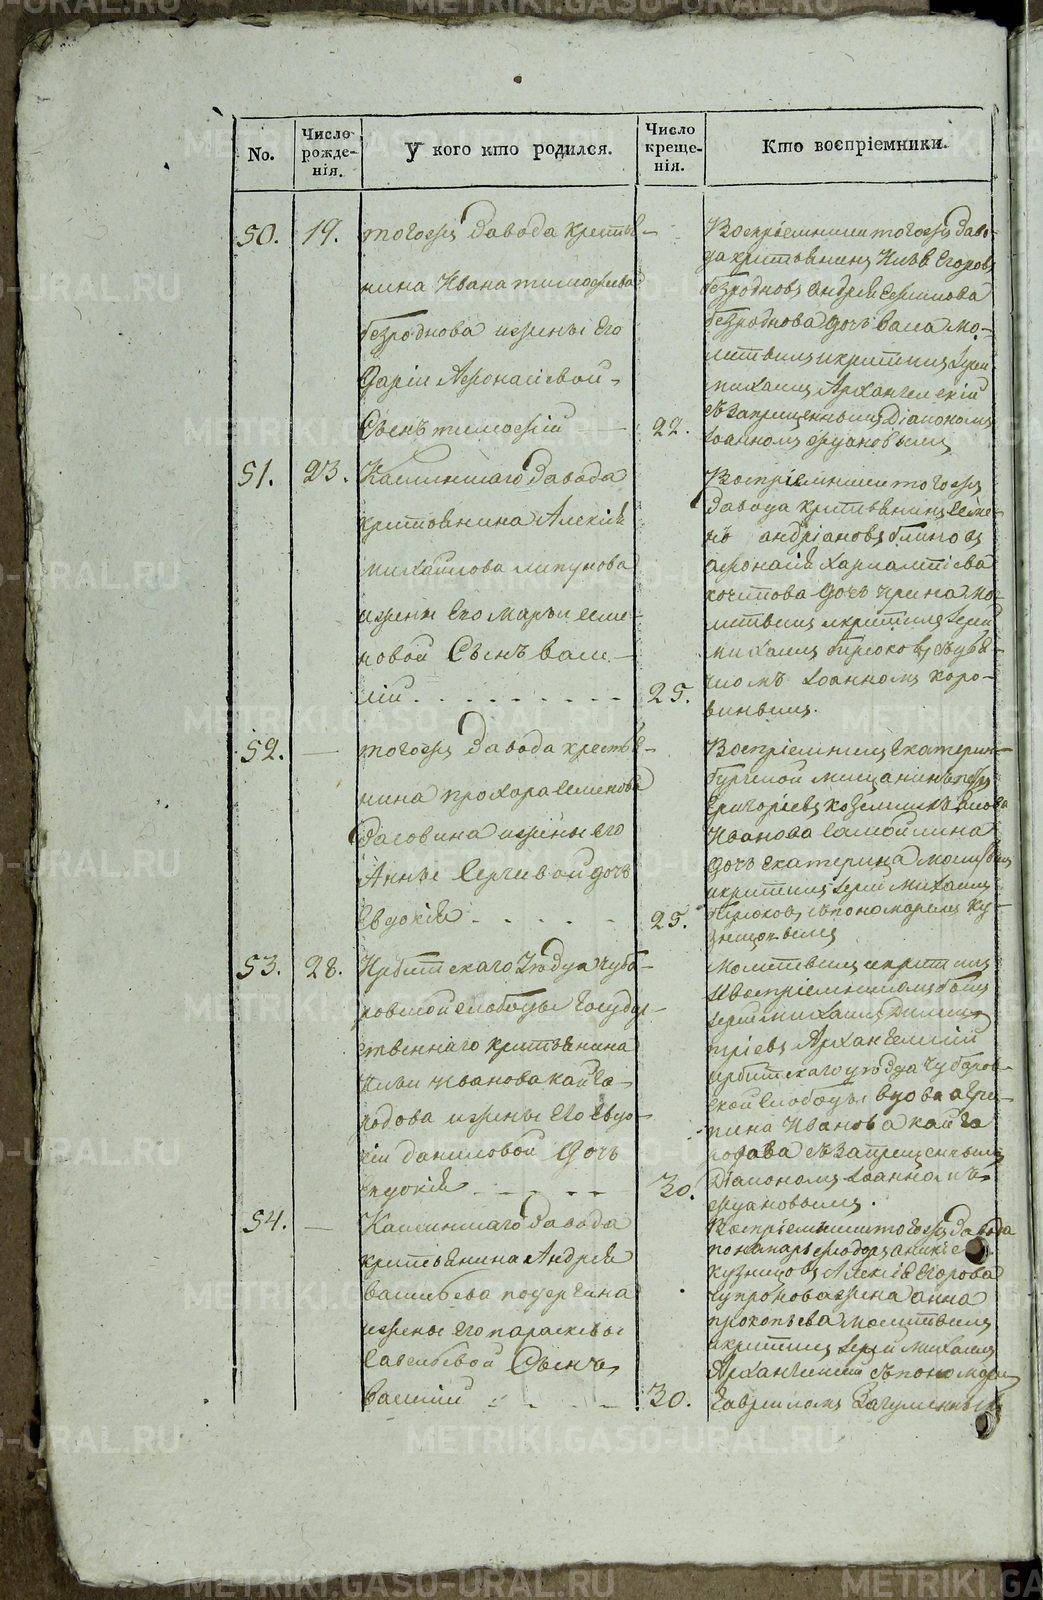 No.
Число рожде-нія.
У кого кто родился.
Число креще-нія.
Кто воспріемники.
50.
19.
тогожъ завода крестья-
нина Ивана тимофеева
безроднова ижены его
Дарiи Афонасiевой
Сынъ тимофѣй
22.
Воспрiемники тогожъ заво-
да крестьянинъ Егоровъ
безродновъ андрея
безроднова дочь мо-
литвилъ икрестилъ Iерей
михаилъ Архангелскiй
съ запрещеннымъ Дiакономъ
Iоанномъ
51.
23.
Камышшаго завода
крестьянина Алексѣя
михайлова липунова
ижены его марьи семе-
новой Сынъ васи-
лiй
25.
Воспрiемники тогожъ
завода крестьянинъ семе-
нъ андрiановъ блиновъ
афонасiя харлампiева
дочь ирина мо-
литвилъ икрестилъ Iерей
михаилъ бирюковъ
Iоанномъ коро-
винымъ.
52.
тогожъ завода крестья-
нина прохора семенова
ижены его
Анны Сергѣвой дочь
Евдокiя
25.
Воспрiемники Екатерин-
бургской мещанинъ петръ
Григорiевъ
Иванова Самойлина
дочь екатерина молитвилъ
икрестилъ Iерей Михаилъ
бирюковъ съ пономаремъ ку-
знецовымъ
53.
28.
Ирбитскаго Уѣзда чуба-
ровской слободы Государ-
ственнаго крестьянина
Ильи Иванова кайго-
родова ижены его Евдо-
кiи даниловой Дочь
Евдокiя
30.
Молитвилъ икрестилъ
ивоспрiемникомъ былъ
Iерей Михаилъ Димит-
рiевъ Архангелскiй
ирбитскаго уѣзда чубаров-
ской слободы вдова
Иванова кайго
родова съ запрещеннымъ
Дiакономъ Iоанномъ
54.
Камышшаго завода
крестьянина Андрея
васильева
ижены его парасковьи
Савельевой Сынъ
василiй
30.
Воспрiемники тогожъ завода
понамарь феодоръ
кузнецовъ Алексѣя Егорова
жена анна
прокопьева молитвилъ
икрестилъ Iерей Михаилъ
Архангелскiй съ пономаремъ
Гавриломъ
METRIKI.GASO-URAL.RU